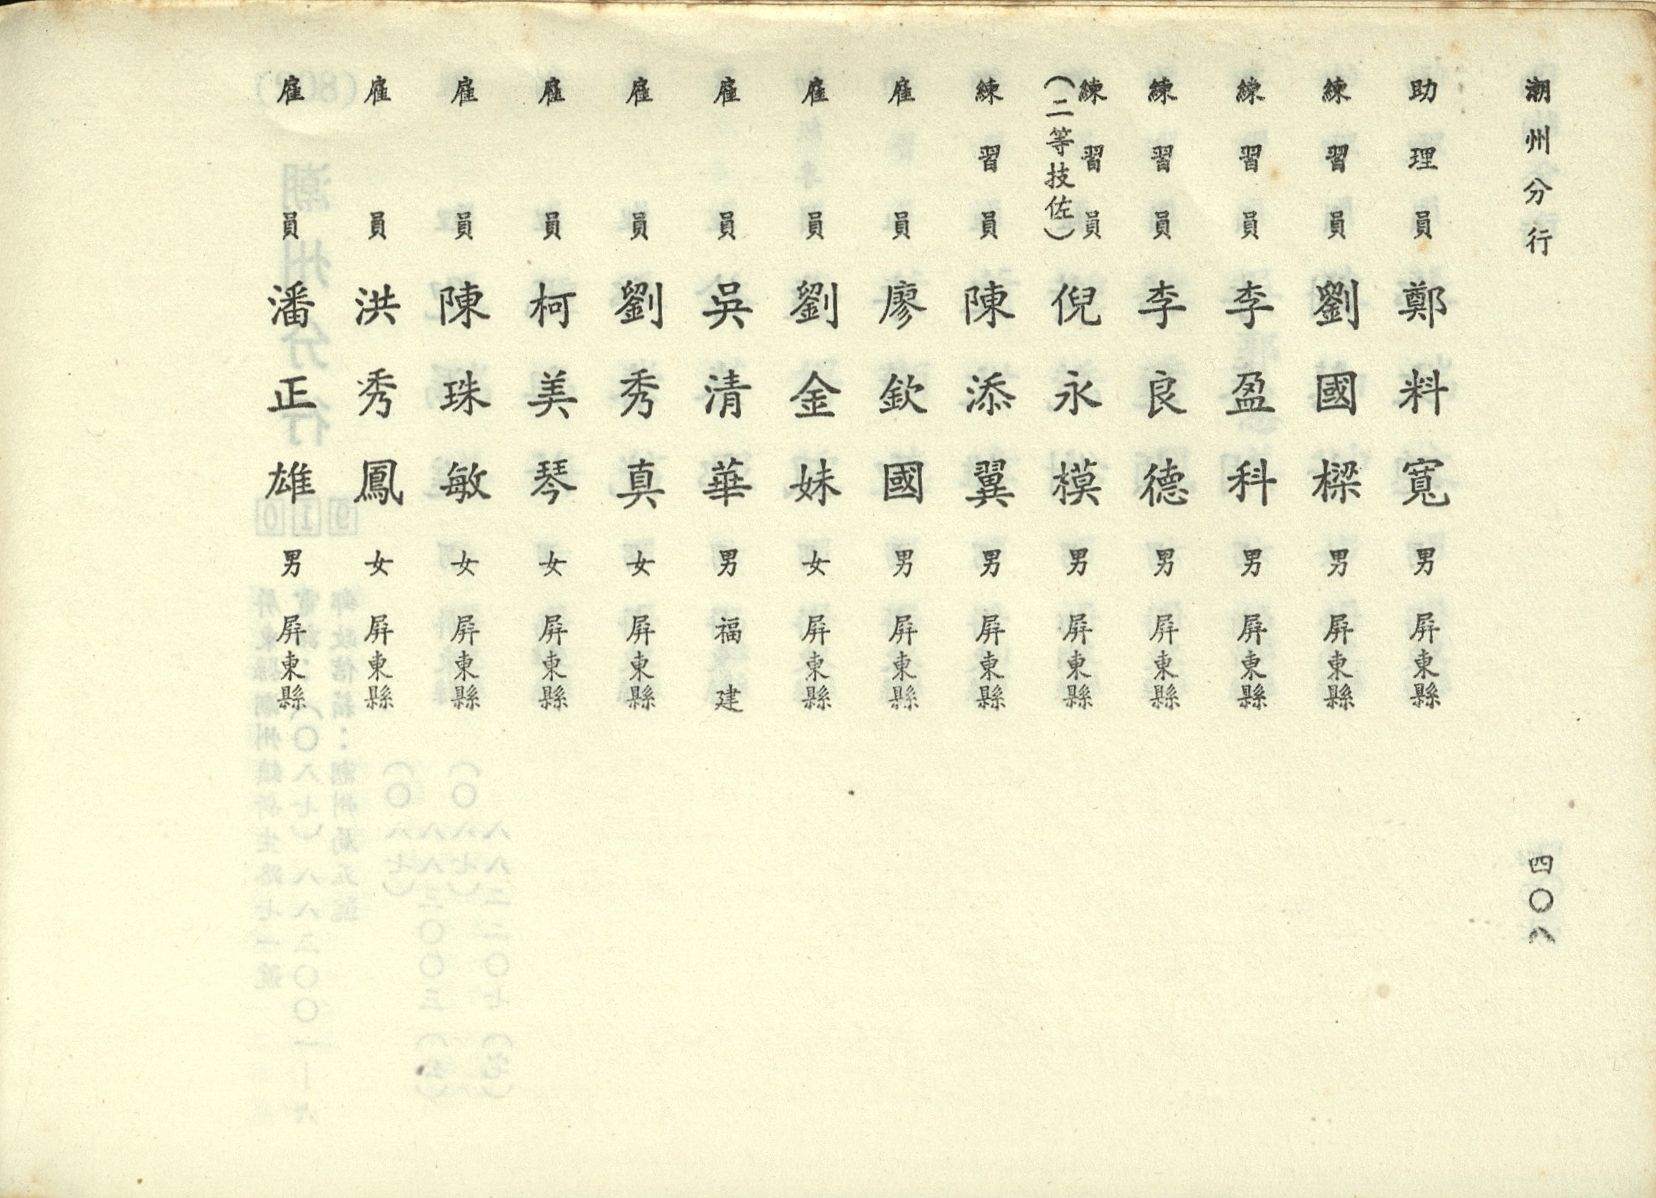 潮州分行 四〇八
助理員 鄭料寬 男 屏東縣
練習員 劉國樑 男 屏東縣
練習員 李盈科 男 屏東縣
練習員 李良德 男 屏東縣
練習員(二等技佐) 倪永模 男 屏東縣
練習員 陳添翼 男 屏東縣
雇員 廖欽國 男 屏東縣
雇員 劉金妹 女 屏東縣
雇員 吳清華 男 福建
雇員 劉秀真 女 屏東縣
雇員 柯美琴 女 屏東縣
雇員 陳珠敏 女 屏東縣
雇員 洪秀鳳 女 屏東縣
雇員 潘正雄 男 屏東縣